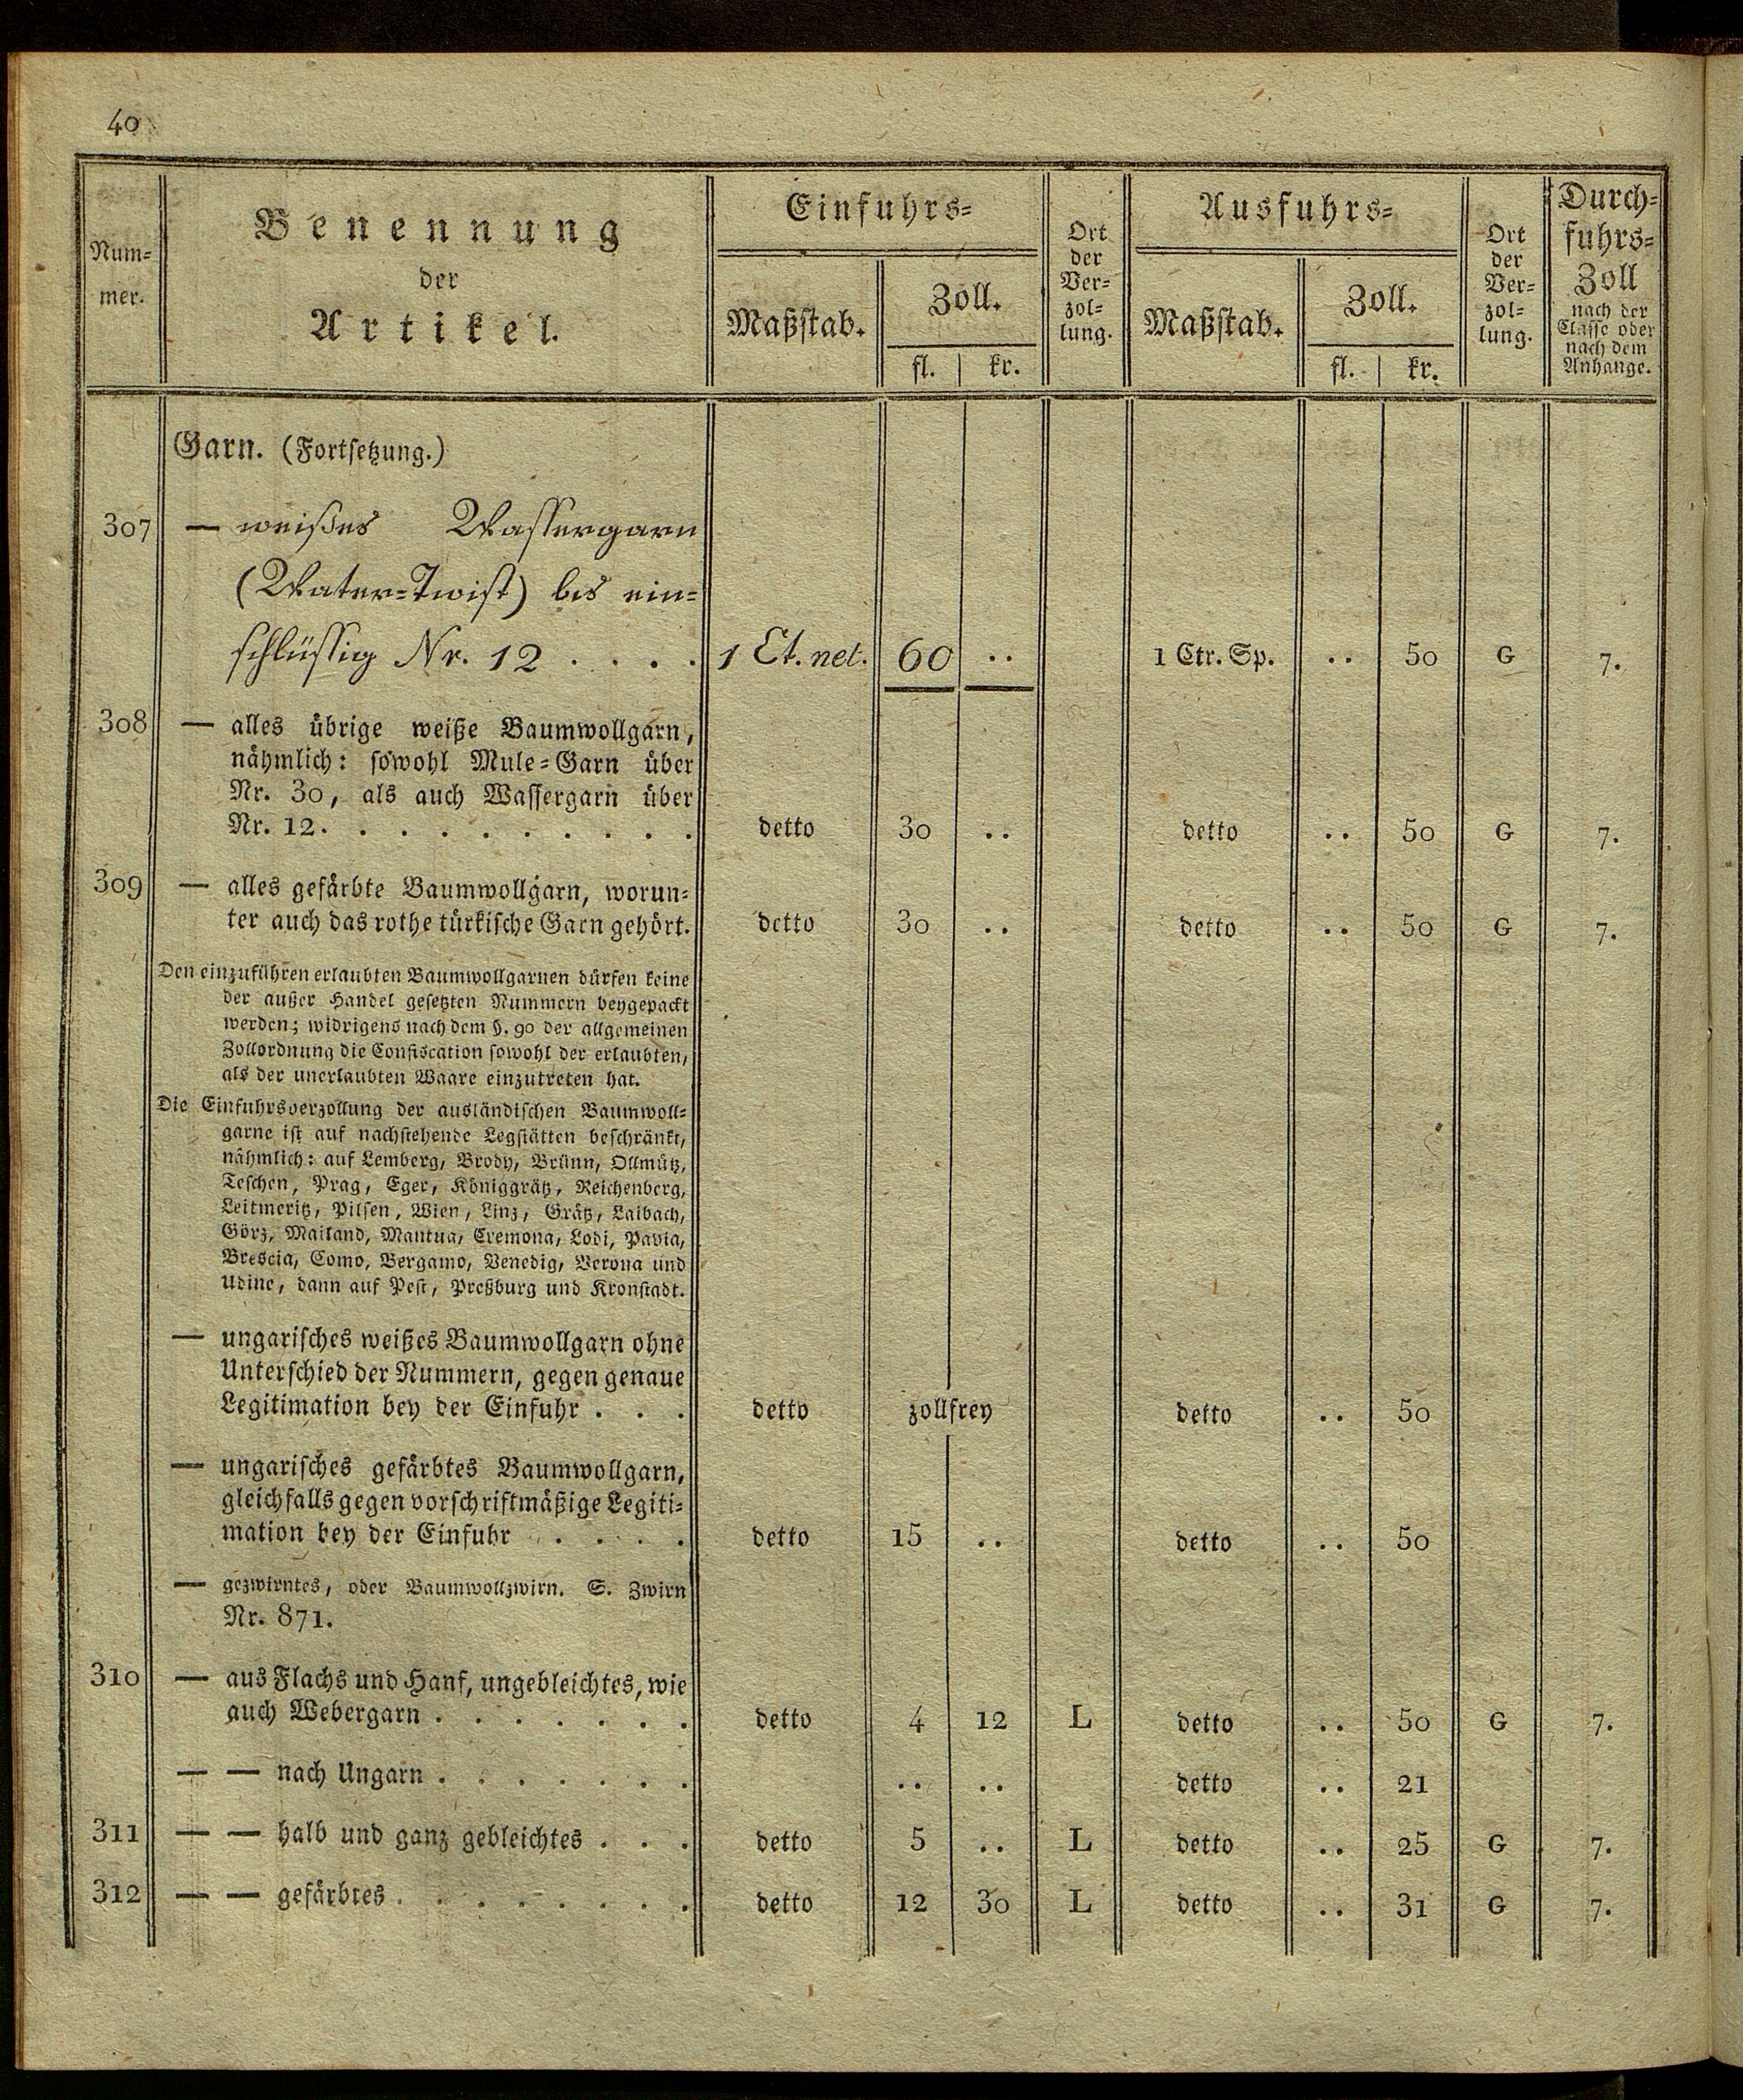 40
Num-
mer.
Benennung
der
Artikel.
Einfuhrs-
Maßstab.
Zoll.
fl. | kr.
Ort
der
Ver-
zol-
lung.
Ausfuhrs-
Maßstab.
Zoll.
fl. | kr.
Ort
der
Ver-
zol-
lung.
Durch-
fuhrs-
Zoll
nach der
Classe oder
nach dem
Anhange.
Garn. (Fortsetzung.)
307 — weißes Wassergarn
(Water-Twist) bis ein-
schlüssig Nr. 12 . . . . 1 Ct. net. 60 .. 1 Ctr. Sp. .. 50 G 7.
308 — alles übrige weiße Baumwollgarn,
nähmlich: sowohl Mule-Garn über
Nr. 30, als auch Wassergarn über
Nr. 12. . . . . . . . . . detto 30 .. detto .. 50 G 7.
309 — alles gefärbte Baumwollgarn, worun-
ter auch das rothe türkische Garn gehört. detto 30 .. detto .. 50 G 7.
Den einzuführen erlaubten Baumwollgarnen dürfen keine
der außer Handel gesetzten Nummern beygepackt
werden; widrigens nach dem §. 90 der allgemeinen
Zollordnung die Confiscation sowohl der erlaubten,
als der unerlaubten Waare einzutreten hat.
Die Einfuhrsverzollung der ausländischen Baumwoll-
garne ist auf nachstehende Legstätten beschränkt,
nähmlich: auf Lemberg, Brody, Brünn, Ollmütz,
Teschen, Prag, Eger, Königgrätz, Reichenberg,
Leitmeritz, Pilsen, Wien, Linz, Grätz, Laibach,
Görz, Mailand, Mantua, Cremona, Lodi, Pavia,
Brescia, Como, Bergamo, Venedig, Verona und
Udine, dann auf Pest, Preßburg und Kronstadt.
— ungarisches weißes Baumwollgarn ohne
Unterschied der Nummern, gegen genaue
Legitimation bey der Einfuhr . . . detto zollfrey detto .. 50
— ungarisches gefärbtes Baumwollgarn,
gleichfalls gegen vorschriftmäßige Legiti-
mation bey der Einfuhr . . . . detto 15 .. detto .. 50
— gezwirntes, oder Baumwollzwirn. S. Zwirn
Nr. 871.
310 — aus Flachs und Hanf, ungebleichtes, wie
auch Webergarn . . . . . . . detto 4 12 L detto .. 50 G 7.
— — nach Ungarn . . . . . . . .. .. detto .. 21
311 — — halb und ganz gebleichtes . . . detto 5 .. L detto .. 25 G 7.
312 — — gefärbtes . . . . . . . . detto 12 30 L detto .. 31 G 7.